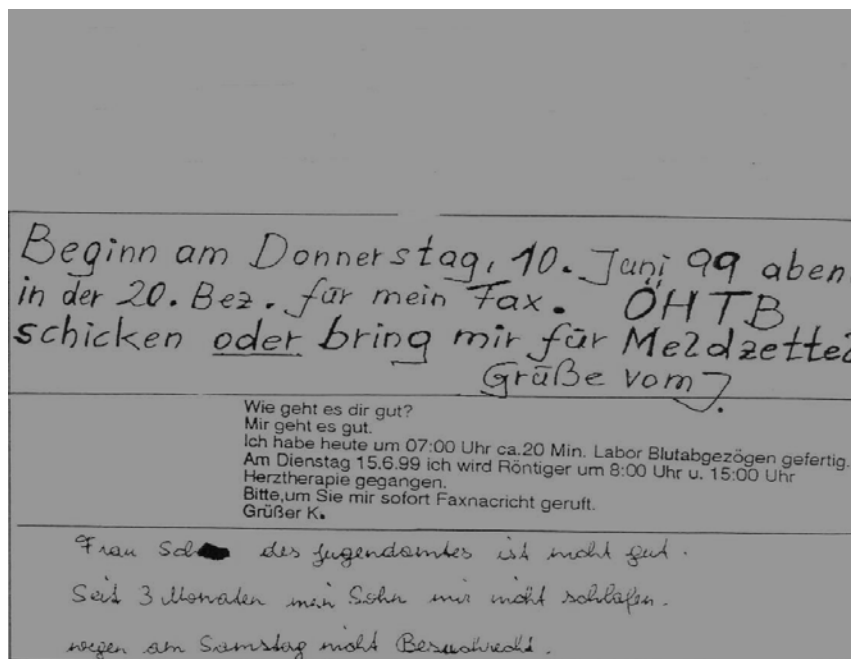 Beginn am Donnerstag, 10. Juni 99 aben
in der 20. Bez. für mein Fax. ÖHTB
schicken oder bring mir für Meldzettel
Grüße vom J.
Wie geht es dir gut?
Mir geht es gut.
Ich habe heute um 07:00 Uhr ca.20 Min. Labor Blutabgezögen gefertig.
Am Dienstag 15.6.99 ich wird Röntiger um 8:00 Uhr u. 15:00 Uhr
Herztherapie gegangen.
Bitte,um Sie mir sofort Faxnacricht geruft.
Grüßer K.
Frau Sch des Jugendamtes ist nicht gut.
Seit 3 Monaten mein Sohn mir nicht schlafen.
wegen am Samstag nicht Besuchrecht.